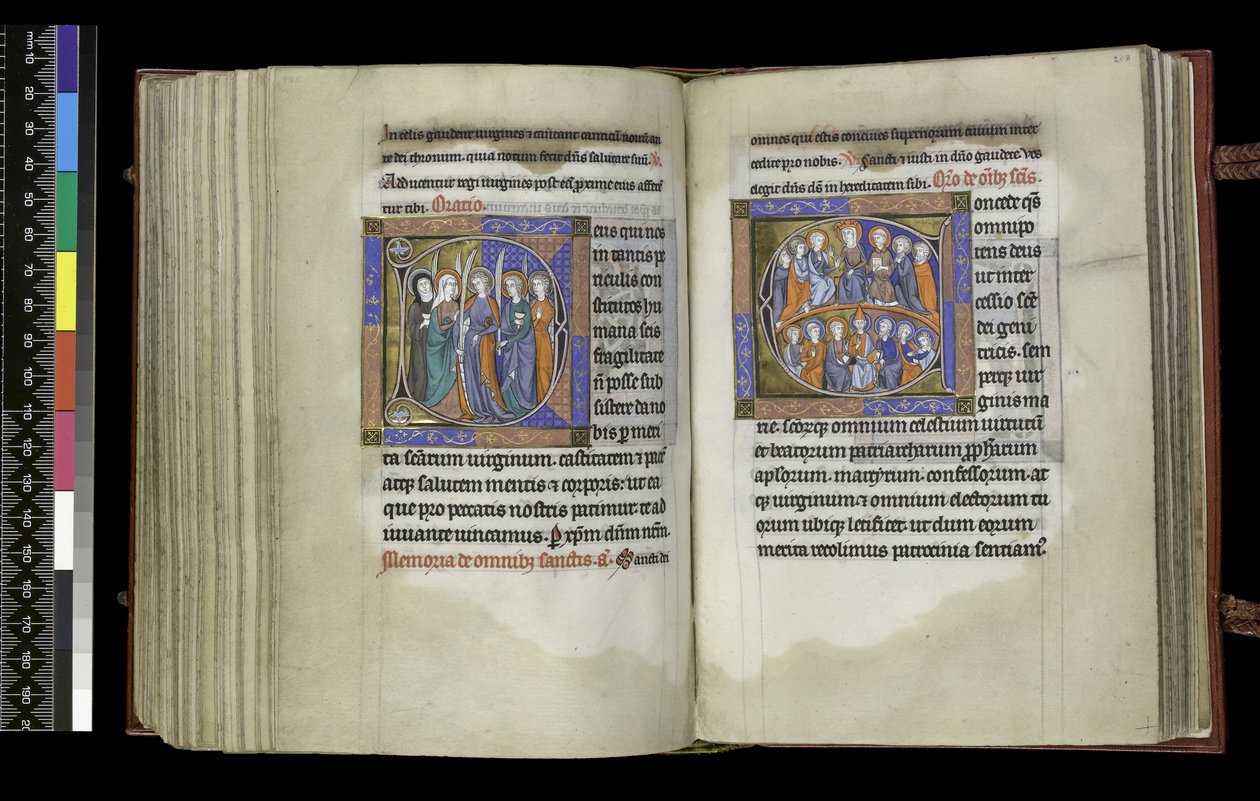 In celis gaudent uirgines ⁊ cantant canticū nouū an
te dei thronum. quia notum fecit dn̄s salutare suū. V̷.
Adducentur regi uirgines post eā ꝓxime eius affer
tur tibi. Oratio.
eus qui nos
in tantis pe
riculis con
stitutos hu
mana scis
fragilitate
ñ posse sub
sistere da no
bis ꝑ meri
ta scārum uirginum. castitatem ⁊ pacē
atqꝫ salutem mentis ⁊ corporis: ut ea
que pro peccatis nostris patimur te ad
iuuante uincamus. P xp̄m dn̄m nr̄m.
Memoria de omnibꝫ sanctis. a͛. Sancti dei
208
omnes qui estis conciues supernorum ciuium inter
cedite pro nobis. V̷. Sancti ⁊ iusti in dn̄o gaudete vos
elegit dn̄s ds̄ in hereditatem sibi. Or̄o de oībꝫ scīs.
oncede qs̄
omnipo
tens deus
ut inter
cessio scē
dei geni
tricis. sem
perqꝫ uir
ginis ma
rie. scōrꝫqꝫ omnium celestium uirtutū
et beatorum patriarcharum ꝓph̄arum
apl̄orum. martyrum. confessorum. at
qꝫ uirginum ⁊ omnium electorum tu
orum ubiqꝫ letificet. ut dum eorum
merita recolimus patrocinia sentiamꝰ.
mm 10
20
30
40
50
60
70
80
90
100
110
120
130
140
150
160
170
180
190